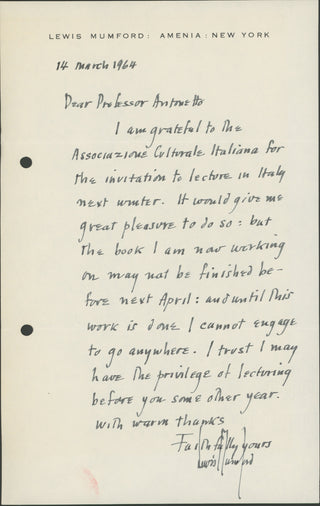 LEWIS MUMFORD: AMENIA: NEW YORK
14 March 1964
Dear Professor Antonetto
I am grateful to the
Associazione Culturale Italiana for
the invitation to lecture in Italy
next winter. It would give me
great pleasure to do so: but
the book I am now working
on may not be finished be-
fore next April: and until this
work is done I cannot engage
to go anywhere. I trust I may
have the privilege of lecturing
before you some other year.
With warm thanks
Faithfully yours
Lewis Mumford